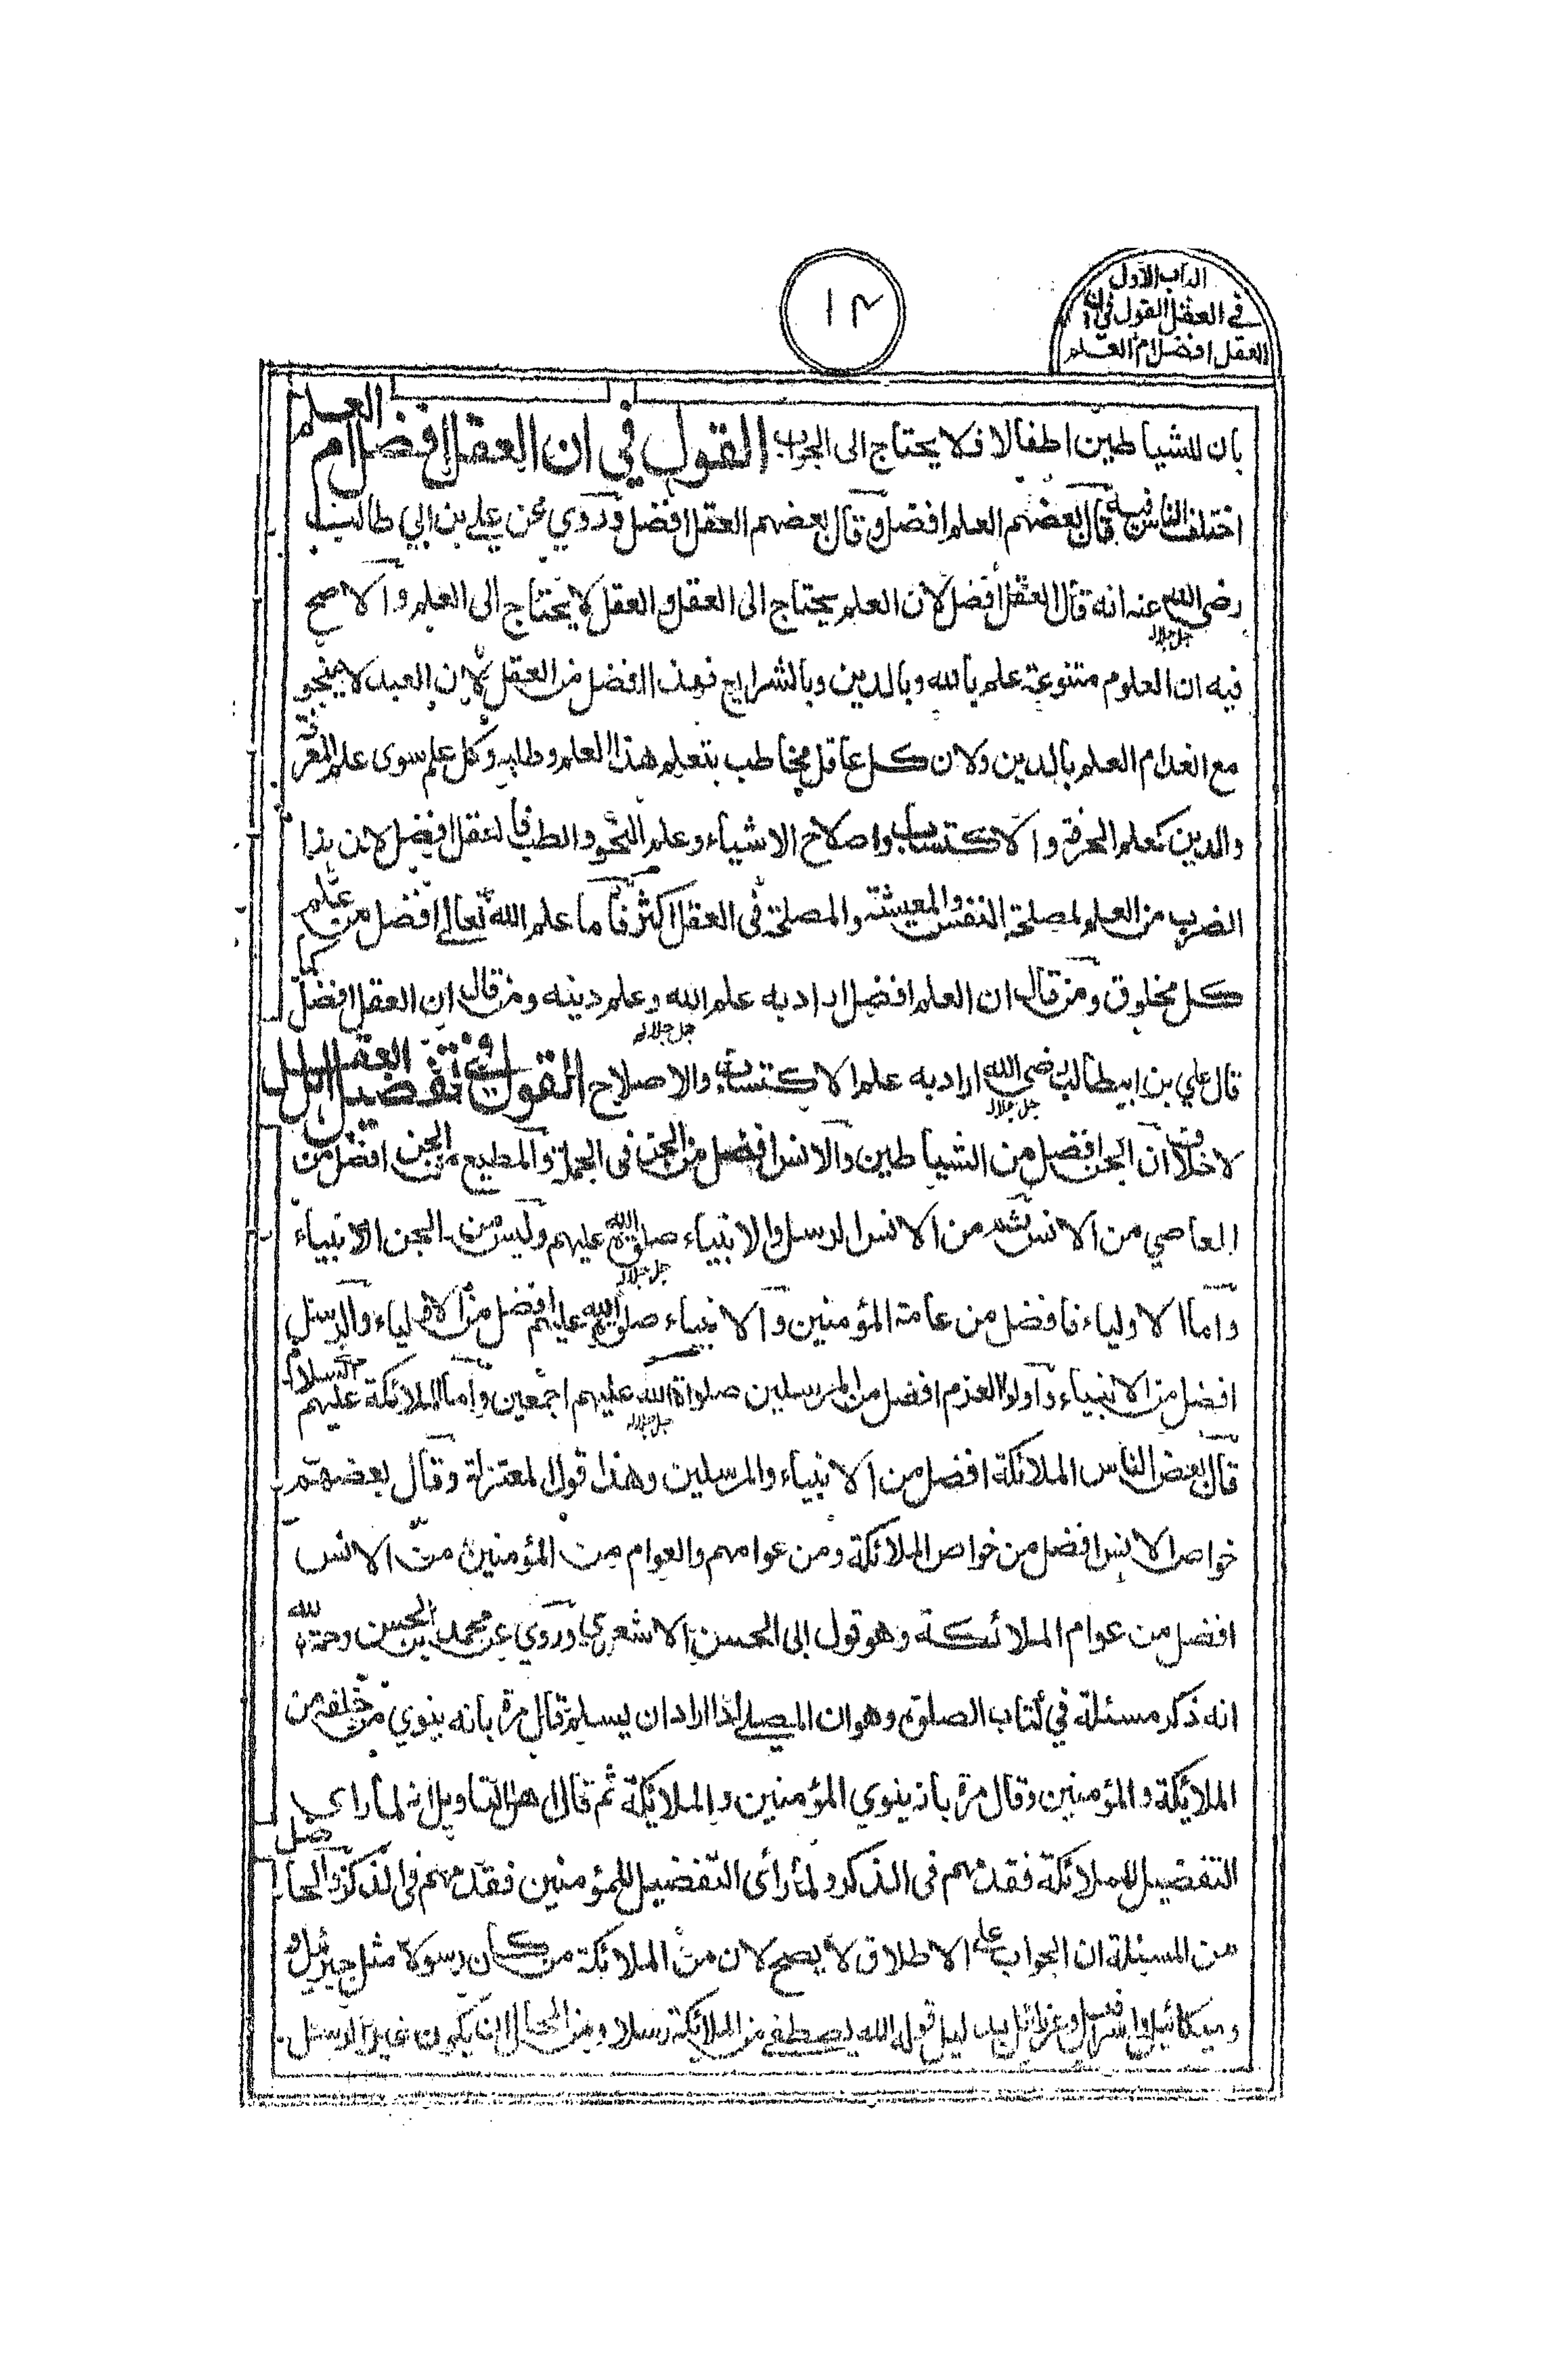 الباب الاول
في العقل القول في ان
العقل افضل ام العلم
١٣
بان للشياطين اطفالا فلا يحتاج الى الجواب القول في ان العقل افضل ام العلم
اختلف الناس فيه قال بعضهم العلم افضل وقال بعضهم العقل افضل وروي عن علي بن ابي طالب
رضي الله جل جلاله عنه انه قال العقل افضل لان العلم يحتاج الى العقل والعقل لا يحتاج الى العلم والاصح
فيه ان العلوم متنوعة علم بالله وبالدين وبالشرايع فهذا افضل من العقل لان العبد لا ينجو
مع انعدام العلم بالدين ولان كل عاقل مخاطب بتعلم هذا العلم وطلبه وكل علم سوى علم
والدين كعلم الحرفة والاكتساب واصلاح الاشياء وعلم النحو والطب فالعقل افضل لان هذا
الضرب من العلم لمصلحة النفس والمعيشة والمصلحة في العقل اكثر فاما علم الله تعالى افضل من علم
كل مخلوق ومن قال ان العلم افضل اراد به علم الله جل جلاله وعلم دينه ومن قال ان العقل افضل كما
قال علي بن ابيطالب رضي الله جل جلاله اراد به علم الاكتساب والاصلاح القول في تفضيل
لا خلاف ان الجن افضل من الشياطين والانس افضل من الجن في الجملة والمطيع من الجن افضل من
العاصي من الانس ثم من الانس الرسل والانبياء صلوة الله جل جلاله عليهم وليس من الجن الانبياء
واما الاولياء فافضل من عامة المؤمنين والانبياء صلوة الله عليهم افضل من الاولياء والرسل
افضل من الانبياء واولوا العزم افضل من المرسلين صلواة الله جل جلاله عليهم اجمعين واما الملائكة عليهم السلام
قال بعض الناس الملائكة افضل من الانبياء والمرسلين وهذا قول المعتزلة وقال بعضهم
خواص الانس افضل من خواص الملائكة ومن عوامهم والعوام من المؤمنين من الانس
افضل من عوام الملائكة وهو قول ابي الحسن الاشعري وروي عن محمد بن الحسن رحمة الله
انه ذكر مسئلة في كتاب الصلوة وهو ان المصلي اذا اراد ان يسلم قال مرة بانه ينوي من خلفه من
الملائكة والمؤمنين وقال مرة بانه ينوي المؤمنين والملائكة ثم قال اهل التاويل انه لما راى
التفضيل للملائكة فقدمهم في الذكر ولما راى التفضيل للمؤمنين فقدمهم في الذكر والحاصل
من المسئلة ان الجواب على الاطلاق لا يصح لان من الملائكة من كان رسولا مثل جبرئيل و
ميكائيل واسرافيل وعزرائيل بدليل قول الله يصطفي من الملائكة رسلا ومن المحال ان يكون غير الرسل